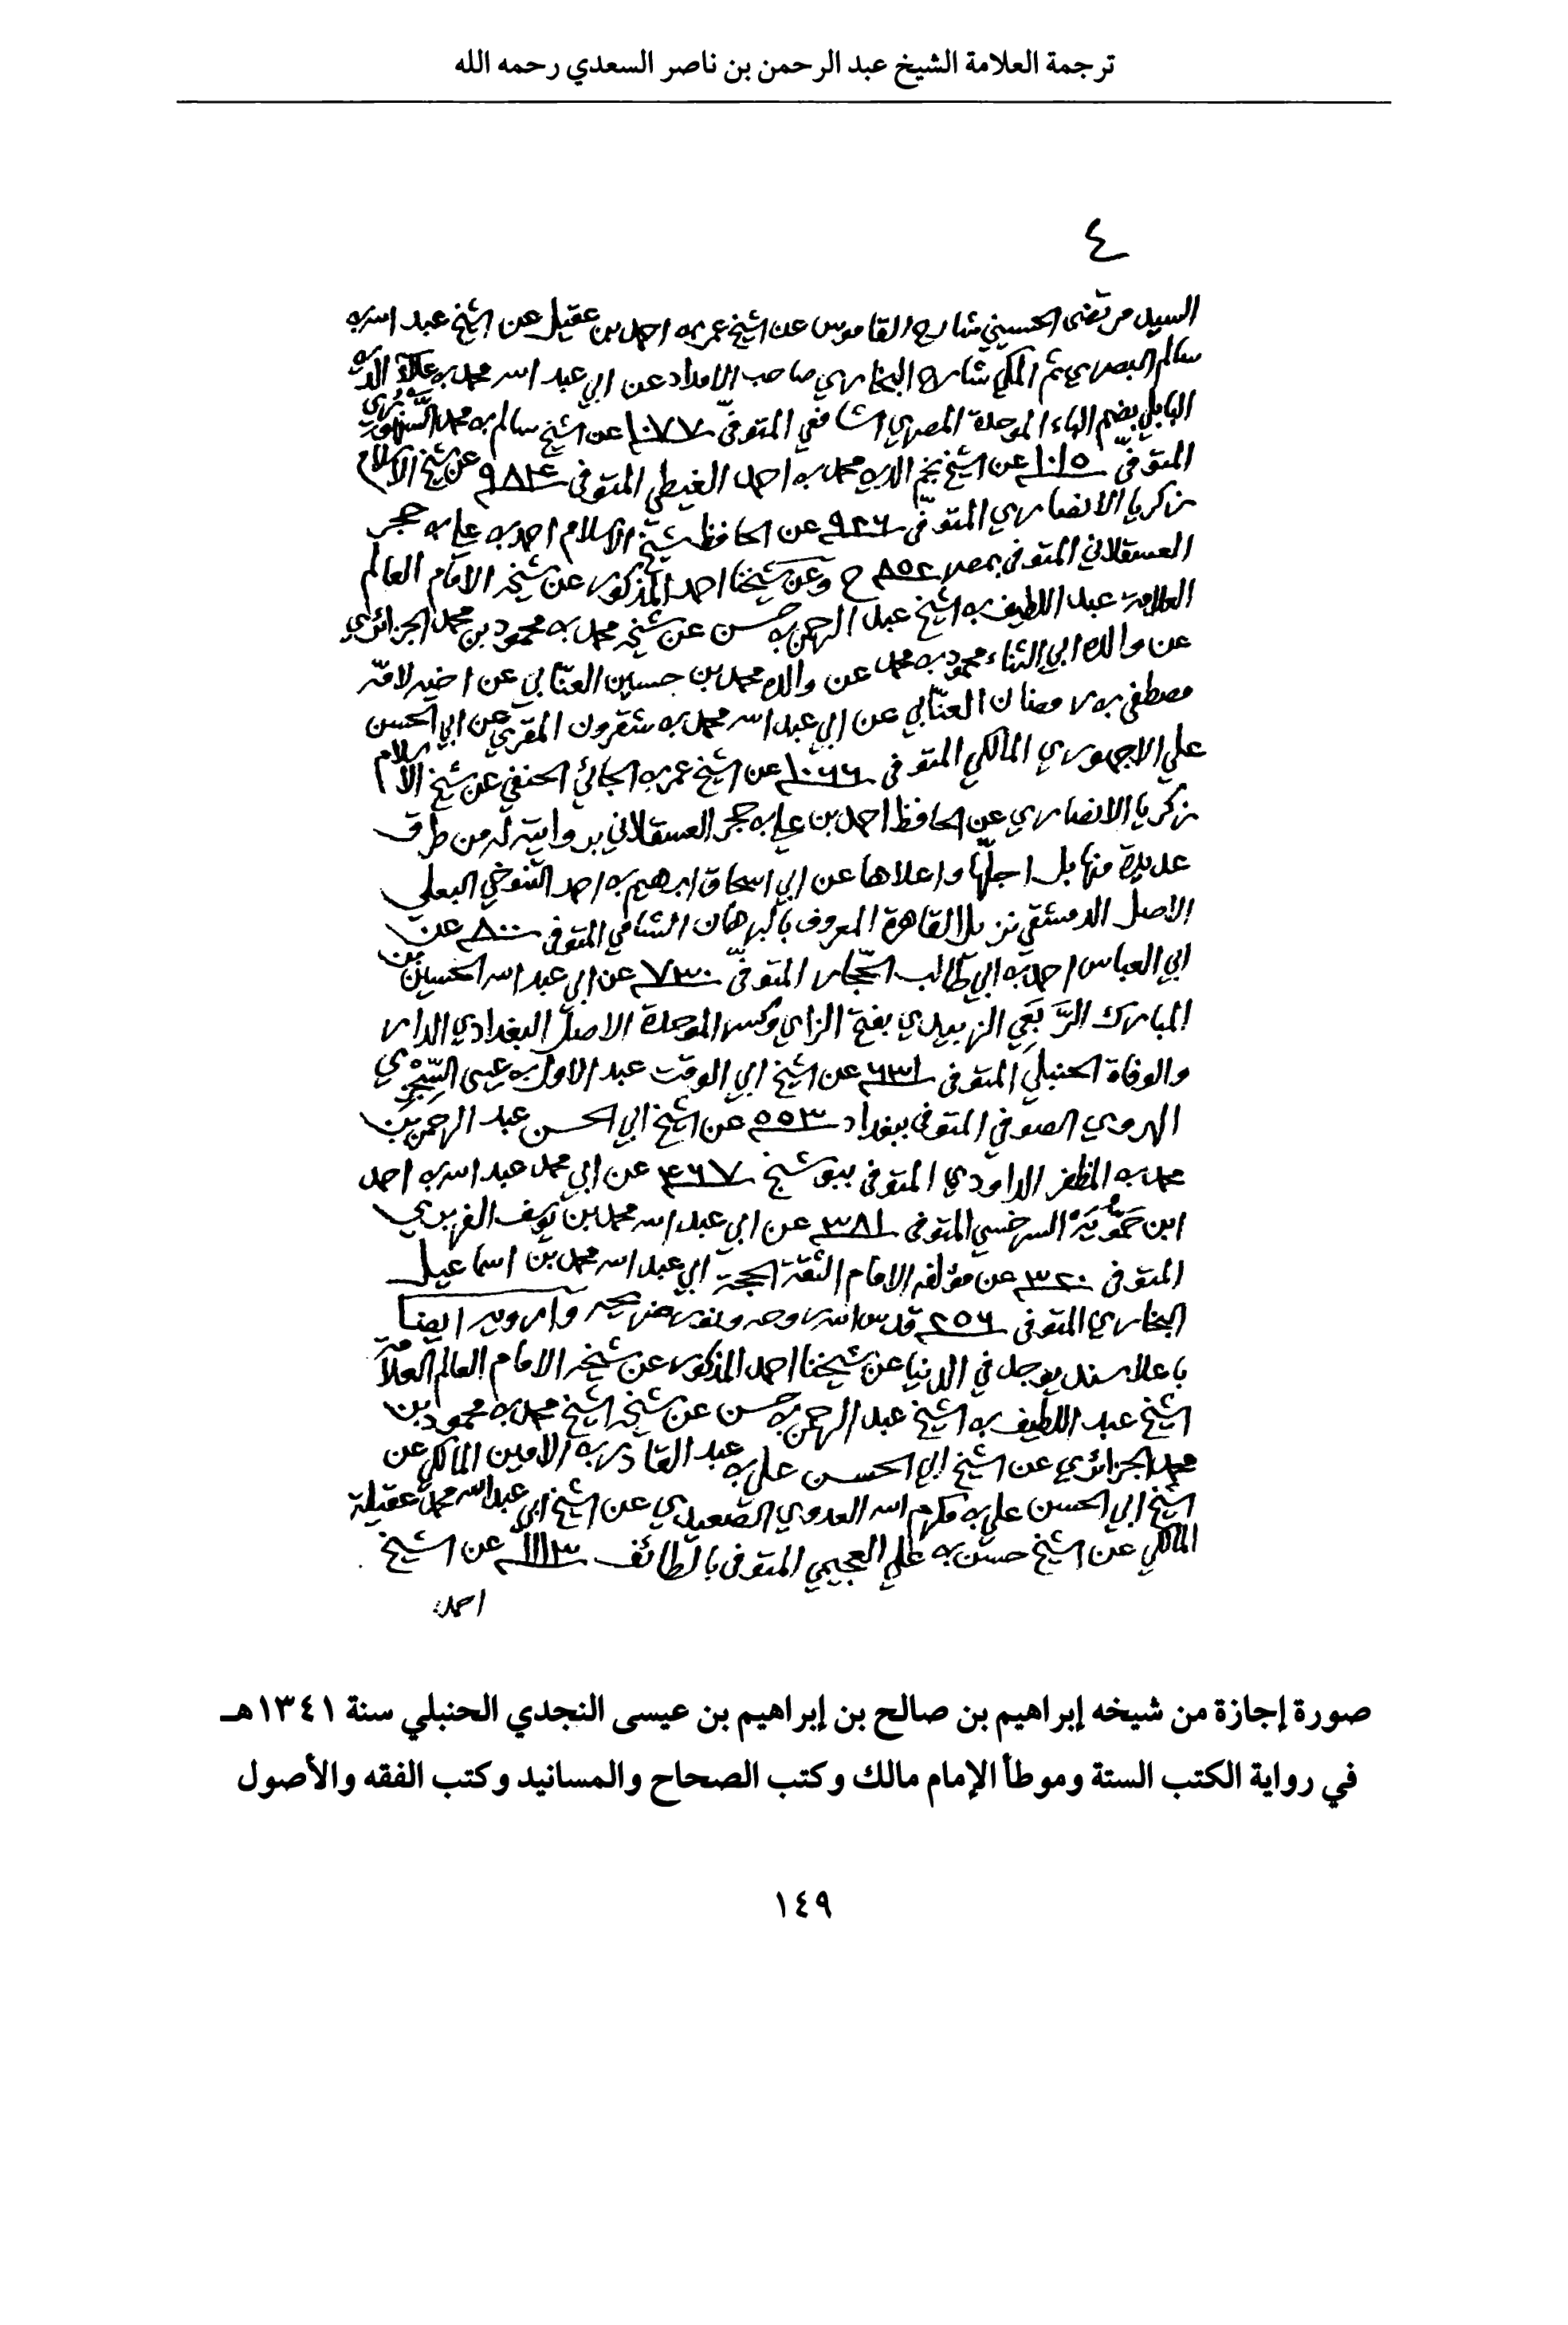 ترجمة العلامة الشيخ عبد الرحمن بن ناصر السعدي رحمه الله
٤
السيد مرتضى الحسيني شارح القاموس عن الشيخ عمر بن احمد بن عقيل عن الشيخ عبد الله بن
سالم البصري ثم المكي شارح البخاري صاحب الامداد عن ابي عبد الله محمد بن علاء الدين
البابلي بضم الباء الموحدة المصري الشافعي المتوفى ١٠٧٧ عن الشيخ سالم بن محمد السنهوري
المتوفى ١٠١٥ عن الشيخ نجم الدين محمد بن احمد الغيطي المتوفى ٩٨٤ عن شيخ الاسلام
زكريا الانصاري المتوفى ٩٢٦ عن الحافظ شيخ الاسلام احمد بن علي بن حجر
العسقلاني المتوفى بمصر ٨٥٢ ح وعن شيخنا احمد المذكور عن شيخه الامام العالم
العلامة عبد اللطيف بن الشيخ عبد الرحمن بن حسن عن شيخه محمد بن محمود بن محمد الجزائري
عن والده ابي الثناء محمود بن محمد عن والده محمد بن حسين العنّابي عن اخيه لامّه
مصطفى بن رمضان العنّابي عن ابي عبد الله محمد بن شقرون المقري عن ابي الحسن
علي الاجهوري المالكي المتوفى ١٠٦٦ عن الشيخ عمر بن الجائي الحنفي عن شيخ الاسلام
زكريا الانصاري عن الحافظ احمد بن علي بن حجر العسقلاني بروايته له من طرق
عديدة منها بل اجلّها واعلاها عن ابي اسحاق ابرهيم بن احمد التنوخي البعلي
الاصل الدمشقي نزيل القاهرة المعروف بالبرهان الشامي المتوفى ٨٠٠ عن
ابي العباس احمد بن ابي طالب الحجّار المتوفّى ٧٣٠ عن ابي عبد الله الحسين بن
المبارك الرَّبَعَي الزبيدي بفتح الزاي وكسر الموحدة الاصل البغدادي الدار
والوفاة الحنبلي المتوفى ٦٣١ عن الشيخ ابي الوقت عبد الاول بن عيسى السِّجْزي
الهروي الصوفي المتوفى ببغداد ٥٥٣ عن الشيخ ابي الحسن عبد الرحمن بن
محمد بن المظفر الداودي المتوفى ببوشنج ٤٦٧ عن ابي محمد عبد الله بن احمد
ابن حَمُّويَه السرخسي المتوفى ٣٨١ عن ابي عبد الله محمد بن يوسف الفربري
المتوفى ٣٢٠ عن مؤلفه الامام الثقة الحجة ابي عبد الله محمد بن اسماعيل
البخاري المتوفى ٢٥٦ قدس الله روحه ونور ضريحه وارويه ايضا
باعلا سند يوجد في الدنيا عن شيخنا احمد المذكور عن شيخه الامام العالم العلامة
الشيخ عبد اللطيف بن الشيخ عبد الرحمن بن حسن عن شيخه الشيخ محمد بن محمود بن
محمد الجزائري عن الشيخ ابي الحسن علي بن عبد القادر بن الامين المالكي عن
الشيخ ابي الحسن علي بن مكرم الله العدوي الصعيدي عن الشيخ ابي عبد الله محمد عقيلة
المالكي عن الشيخ حسن بن علي العجيمي المتوفى بالطائف ١١١٣ عن الشيخ
احمد
صورة إجازة من شيخه إبراهيم بن صالح بن إبراهيم بن عيسى النجدي الحنبلي سنة ١٣٤١هـ
في رواية الكتب الستة وموطأ الإمام مالك وكتب الصحاح والمسانيد وكتب الفقه والأصول
١٤٩